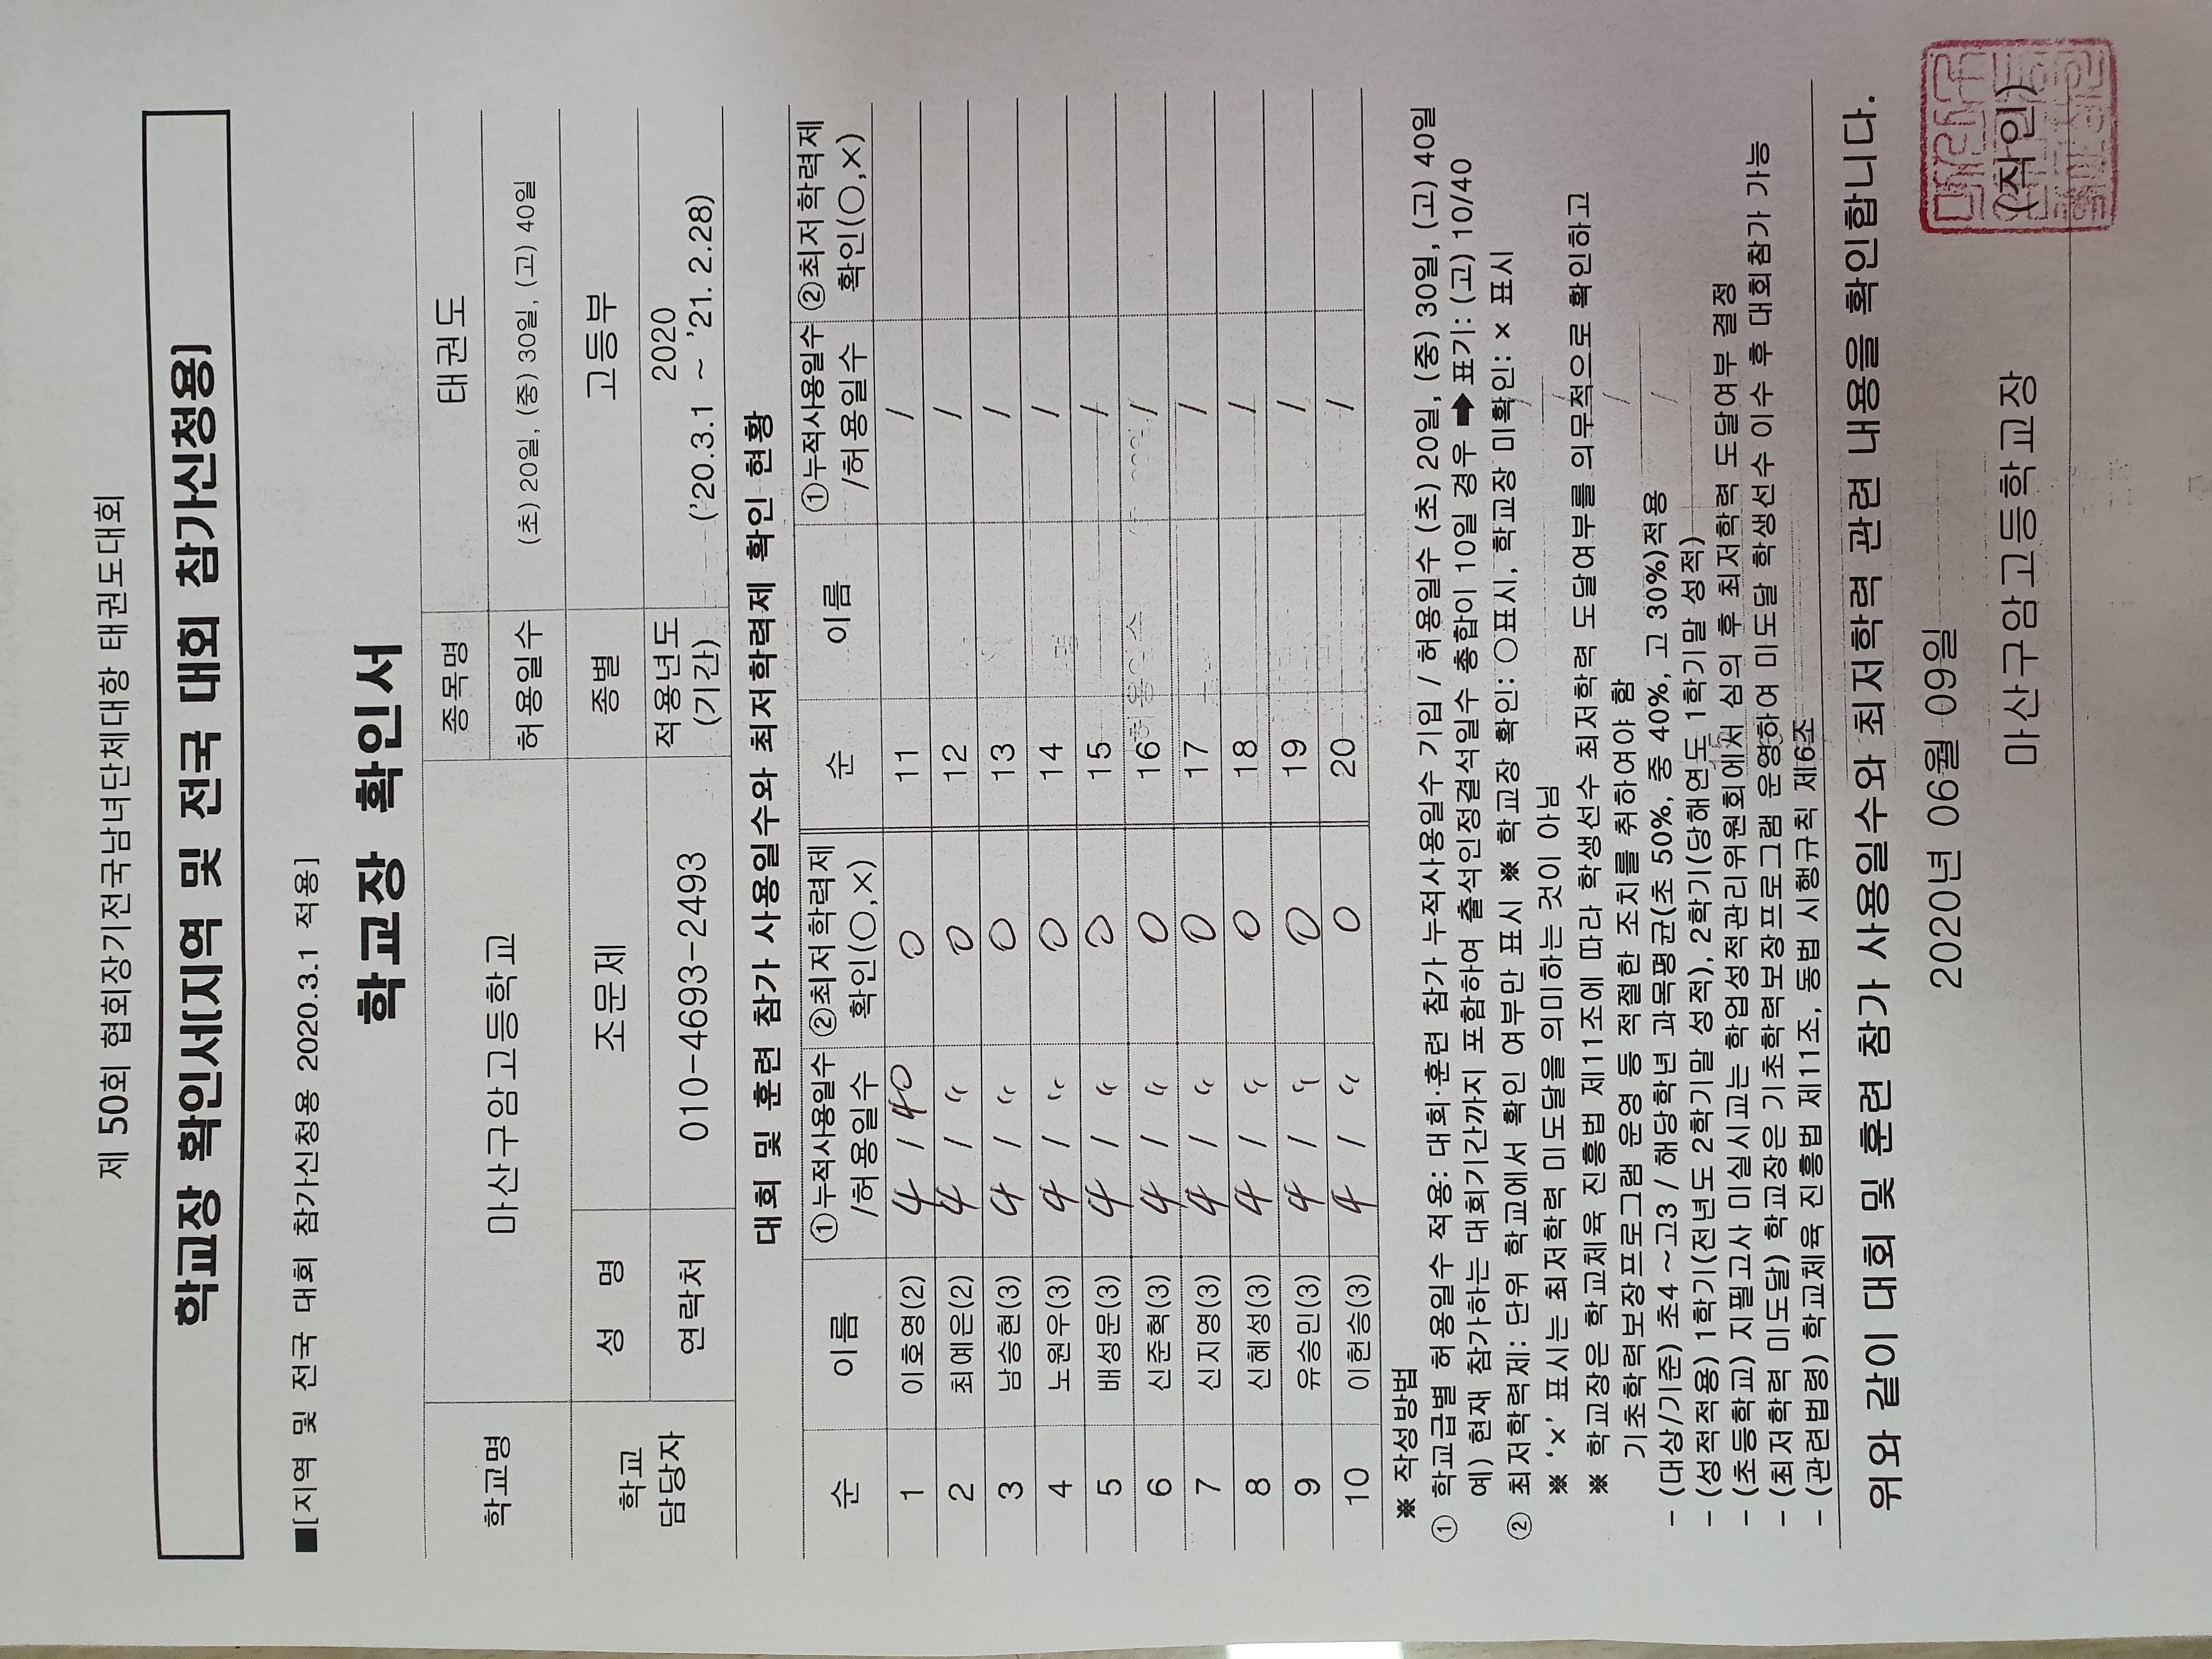 제 50회 협회장기전국남녀단체대항 태권도대회
학교장 확인서[지역 및 전국 대회 참가신청용]
■[지역 및 전국 대회 참가신청용 2020.3.1 적용]
학교장 확인서
학교명 마산구암고등학교 종목명 태권도
허용일수 (초) 20일, (중) 30일, (고) 40일
학교 담당자 성 명 조문제 종별 고등부
연락처 010-4693-2493 적용년도 (기간) 2020 ('20.3.1 ~ '21. 2.28)
대회 및 훈련 참가 사용일수와 최저학력제 확인 현황
순 이름 ①누적사용일수 /허용일수 ②최저학력제 확인(○,×) 순 이름 ①누적사용일수 /허용일수 ②최저학력제 확인(○,×)
1 이호영(2) 4 / 40 ○ 11 /
2 최예은(2) 4 / 〃 ○ 12 /
3 남승현(3) 4 / 〃 ○ 13 /
4 노원우(3) 4 / 〃 ○ 14 /
5 배성문(3) 4 / 〃 ○ 15 /
6 신준혁(3) 4 / 〃 ○ 16 /
7 신지영(3) 4 / 〃 ○ 17 /
8 신혜성(3) 4 / 〃 ○ 18 /
9 유승민(3) 4 / 〃 ○ 19 /
10 이헌승(3) 4 / 〃 ○ 20 /
※ 작성방법
① 학교급별 허용일수 적용: 대회·훈련 참가 누적사용일수 기입 / 허용일수 (초) 20일, (중) 30일, (고) 40일
예) 현재 참가하는 대회기간까지 포함하여 출석인정결석일수 총합이 10일 경우 ➡ 표기: (고) 10/40
② 최저학력제: 단위 학교에서 확인 여부만 표시 ※ 학교장 확인: ○표시, 학교장 미확인: × 표시
※ '×' 표시는 최저학력 미도달을 의미하는 것이 아님
※ 학교장은 학교체육 진흥법 제11조에 따라 학생선수 최저학력 도달여부를 의무적으로 확인하고
기초학력보장프로그램 운영 등 적절한 조치를 취하여야 함
- (대상/기준) 초4 ~고3 / 해당학년 과목평균(초 50%, 중 40%, 고 30%)적용
- (성적적용) 1학기(전년도 2학기말 성적), 2학기(당해연도 1학기말 성적)
- (초등학교) 지필고사 미실시교는 학업성적관리위원회에서 심의 후 최저학력 도달여부 결정
- (최저학력 미도달) 학교장은 기초학력보장프로그램 운영하여 미도달 학생선수 이수 후 대회참가 가능
- (관련법령) 학교체육 진흥법 제11조, 동법 시행규칙 제6조
위와 같이 대회 및 훈련 참가 사용일수와 최저학력 관련 내용을 확인합니다.
2020년 06월 09일
마산구암고등학교장 (직인)